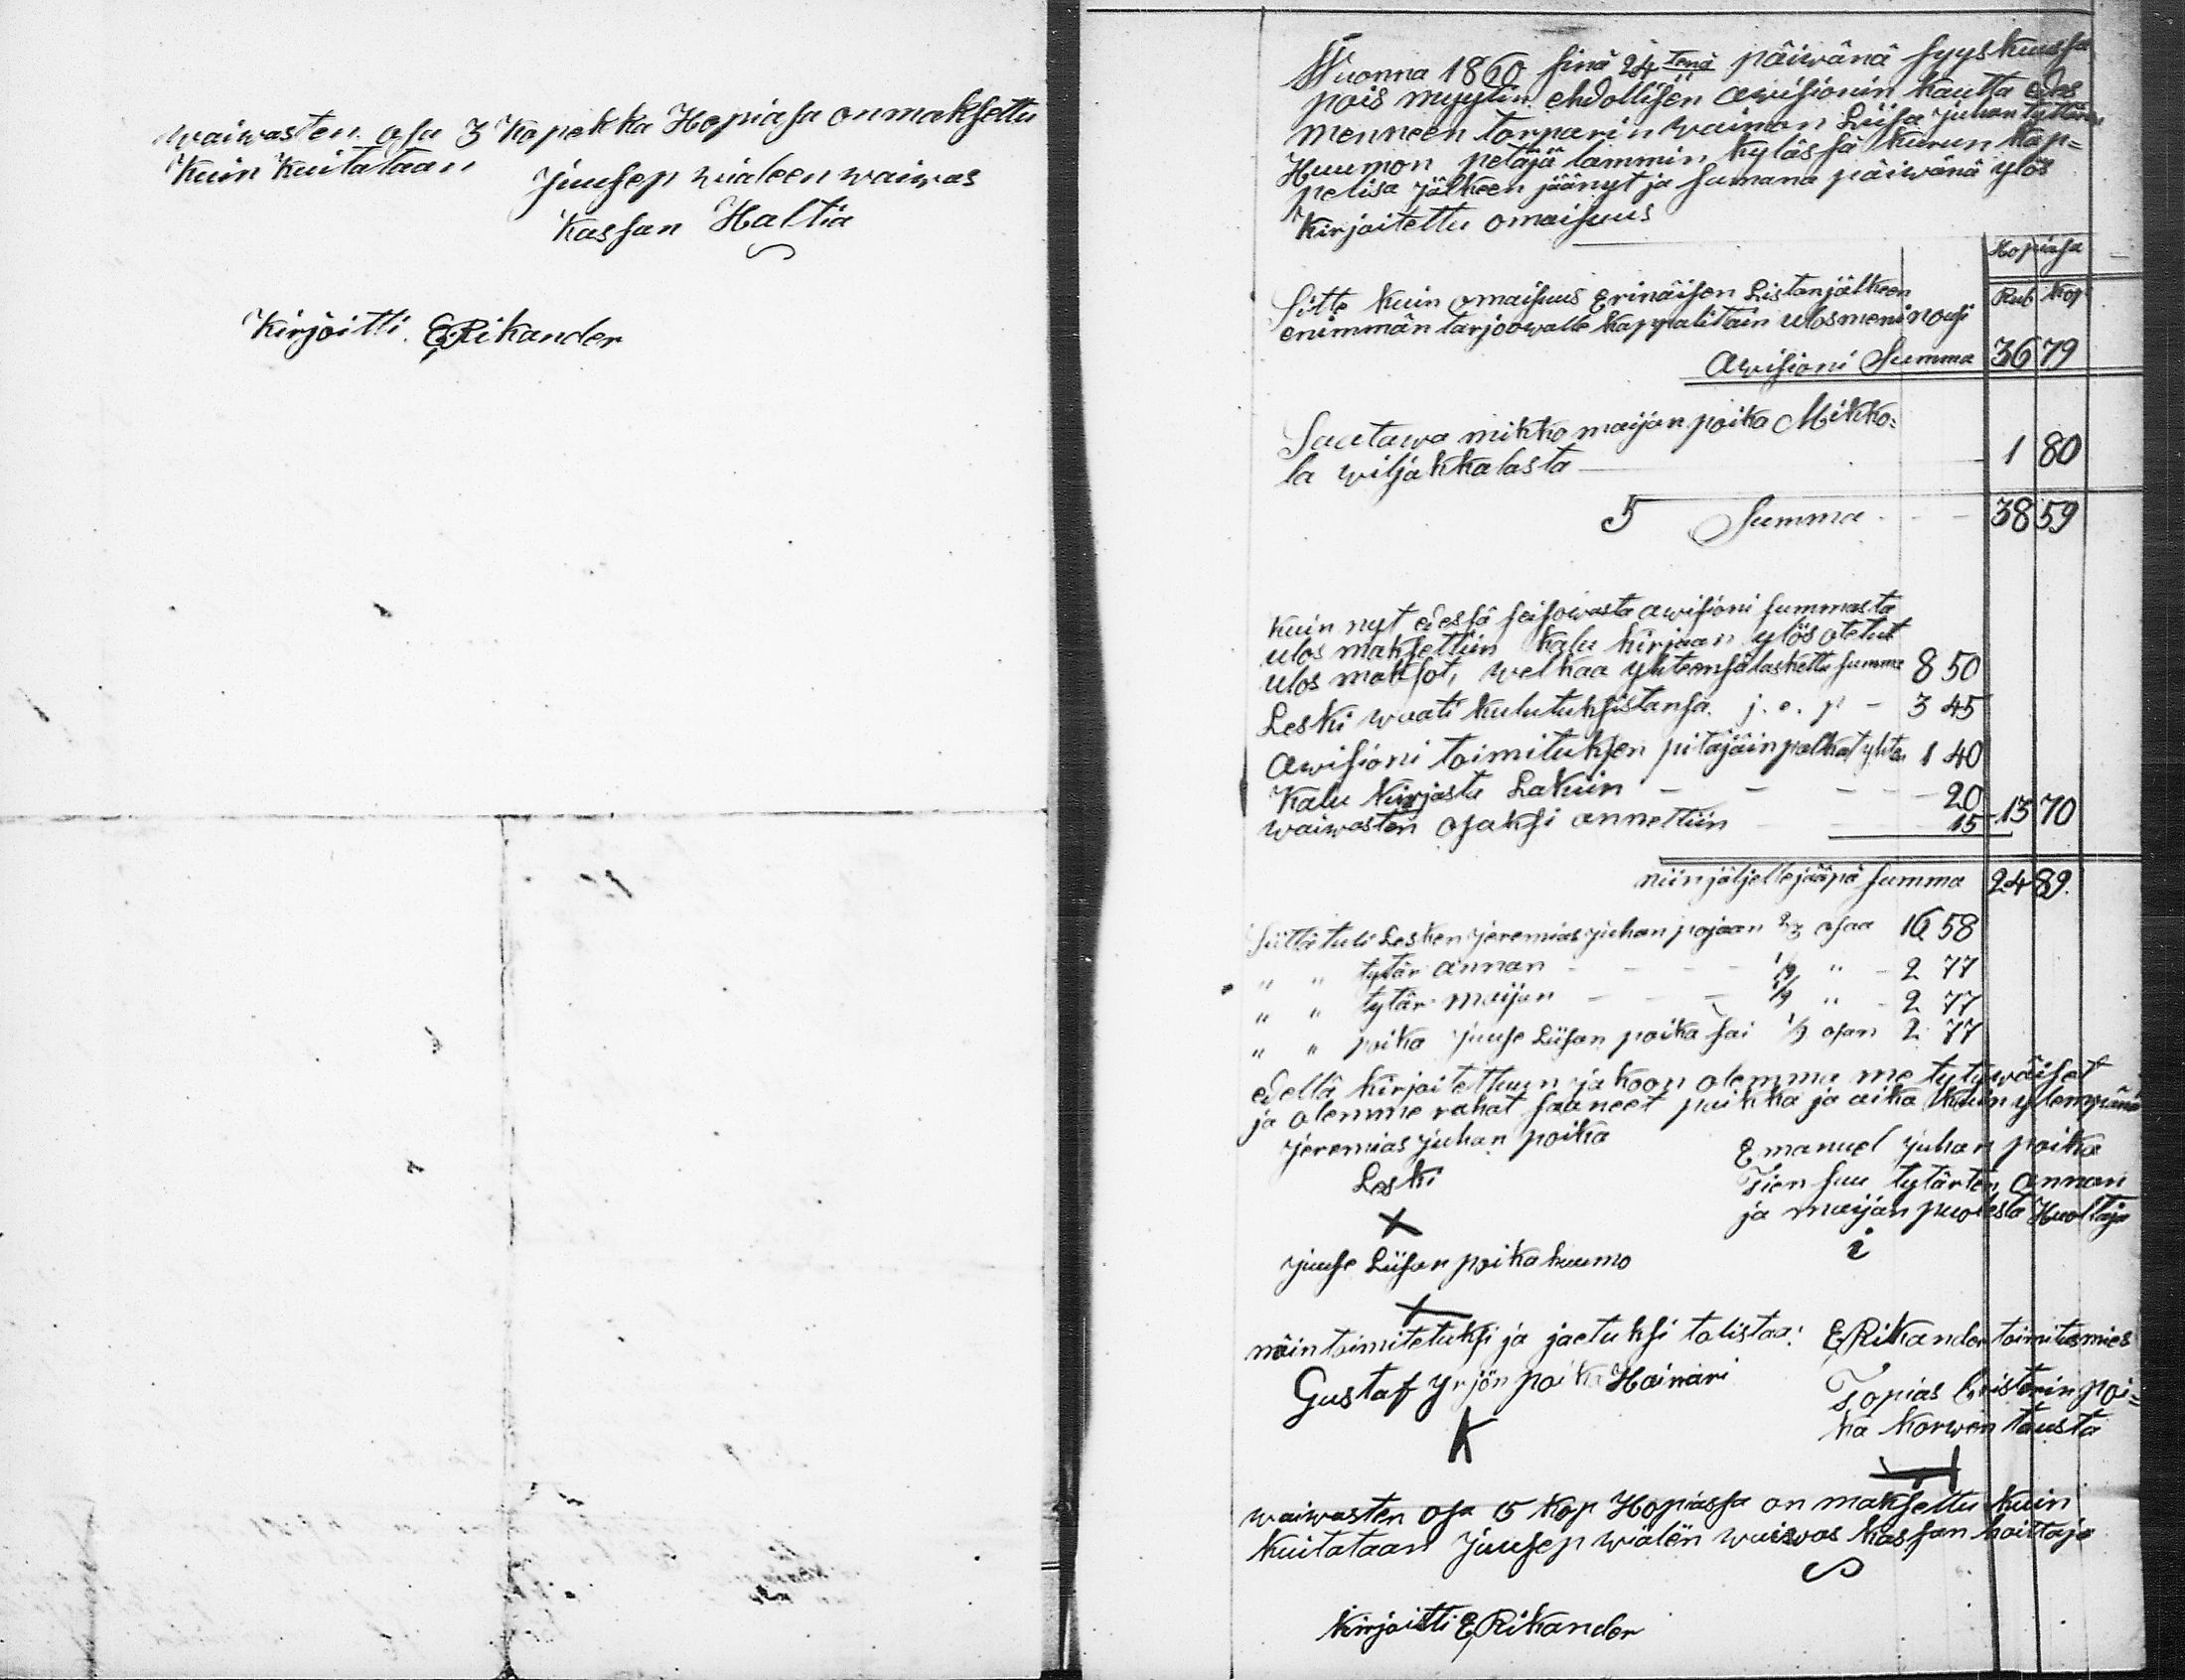 waiwasten osa 3 kopekka Hopiasa on maksettu
Kuin Kuitataan
Juusep wialeen waiwas
Kassan Haltia
Kirjoitti. E.Rikander
Wuonna 1860 sinä 24 tenä päiwänä syyskuussa
pois myytiin ehdollisen awisionin kautta edes
menneen torparin waimon Liisa juhan tyttären
Huumon petäjä lammin kylässä kurun kap=
pelisa jälkeen jäänyt ja samana päiwänä ylös
Kirjoitettu omaisuus
Hopiasa
Rub Kop
Sitte kuin omaisuus Erinäisen Listan jälkeen
enimmän tarjoowalle kappalitain ulosmeni nousi
Awisioni Summa 36 79
Saatawa mikko maijan poika Mikko=
la wiljakkalasta 1 80
Summa 38 59
kuin nyt edessä seisowasta awisioni summasta
ulos maksettiin kalu kirjaan ylös otetut
ulos maksot, welkaa yhteensä laskettu summa 8 50
Leski waati kulutuksistansa j. e. p - 3 45
Awisioni toimituksen pitäjäin palkat yhte 1 40
Kalu kirjasta Lakiin - - - - 20
waiwasten osaksi annettiin 15 13 70
niin jäljelle jääpä summa 24 89.
Siittä tuli Lesken jeremias juhan pojaan 2/3 osaa 16 58
" " tytär annan - - - - 1/9 " - 2 77
" " tytär maijan - - - 1/9 " - 2 77
" " poika Juuse Liisan poika sai 1/9 osan 2 77
edellä kirjoitettuun jakoon olemma me tytywäiset
ja olemme rahat saaneet paikka ja aika kuin ylempänä
jeremias juhan poika
Leski
X
Emanuel juhan poika
tytärten annan
ja maijan puolesta Huoltaja
Juuse Liisan poika huumo
X
näin toimitetuksi ja jaetuksi tolistaa: E.Rikander toimitusmies
Gustaf yrjön poika Hainari
K
Topias Cristerin poi=
ka Korwen tausta
waiwasten osa 15 kop Hopiassa on maksettu kuin
kuitataan Juusep wialen waiwas kassan hoittaja
Kirjoitti E.Rikander